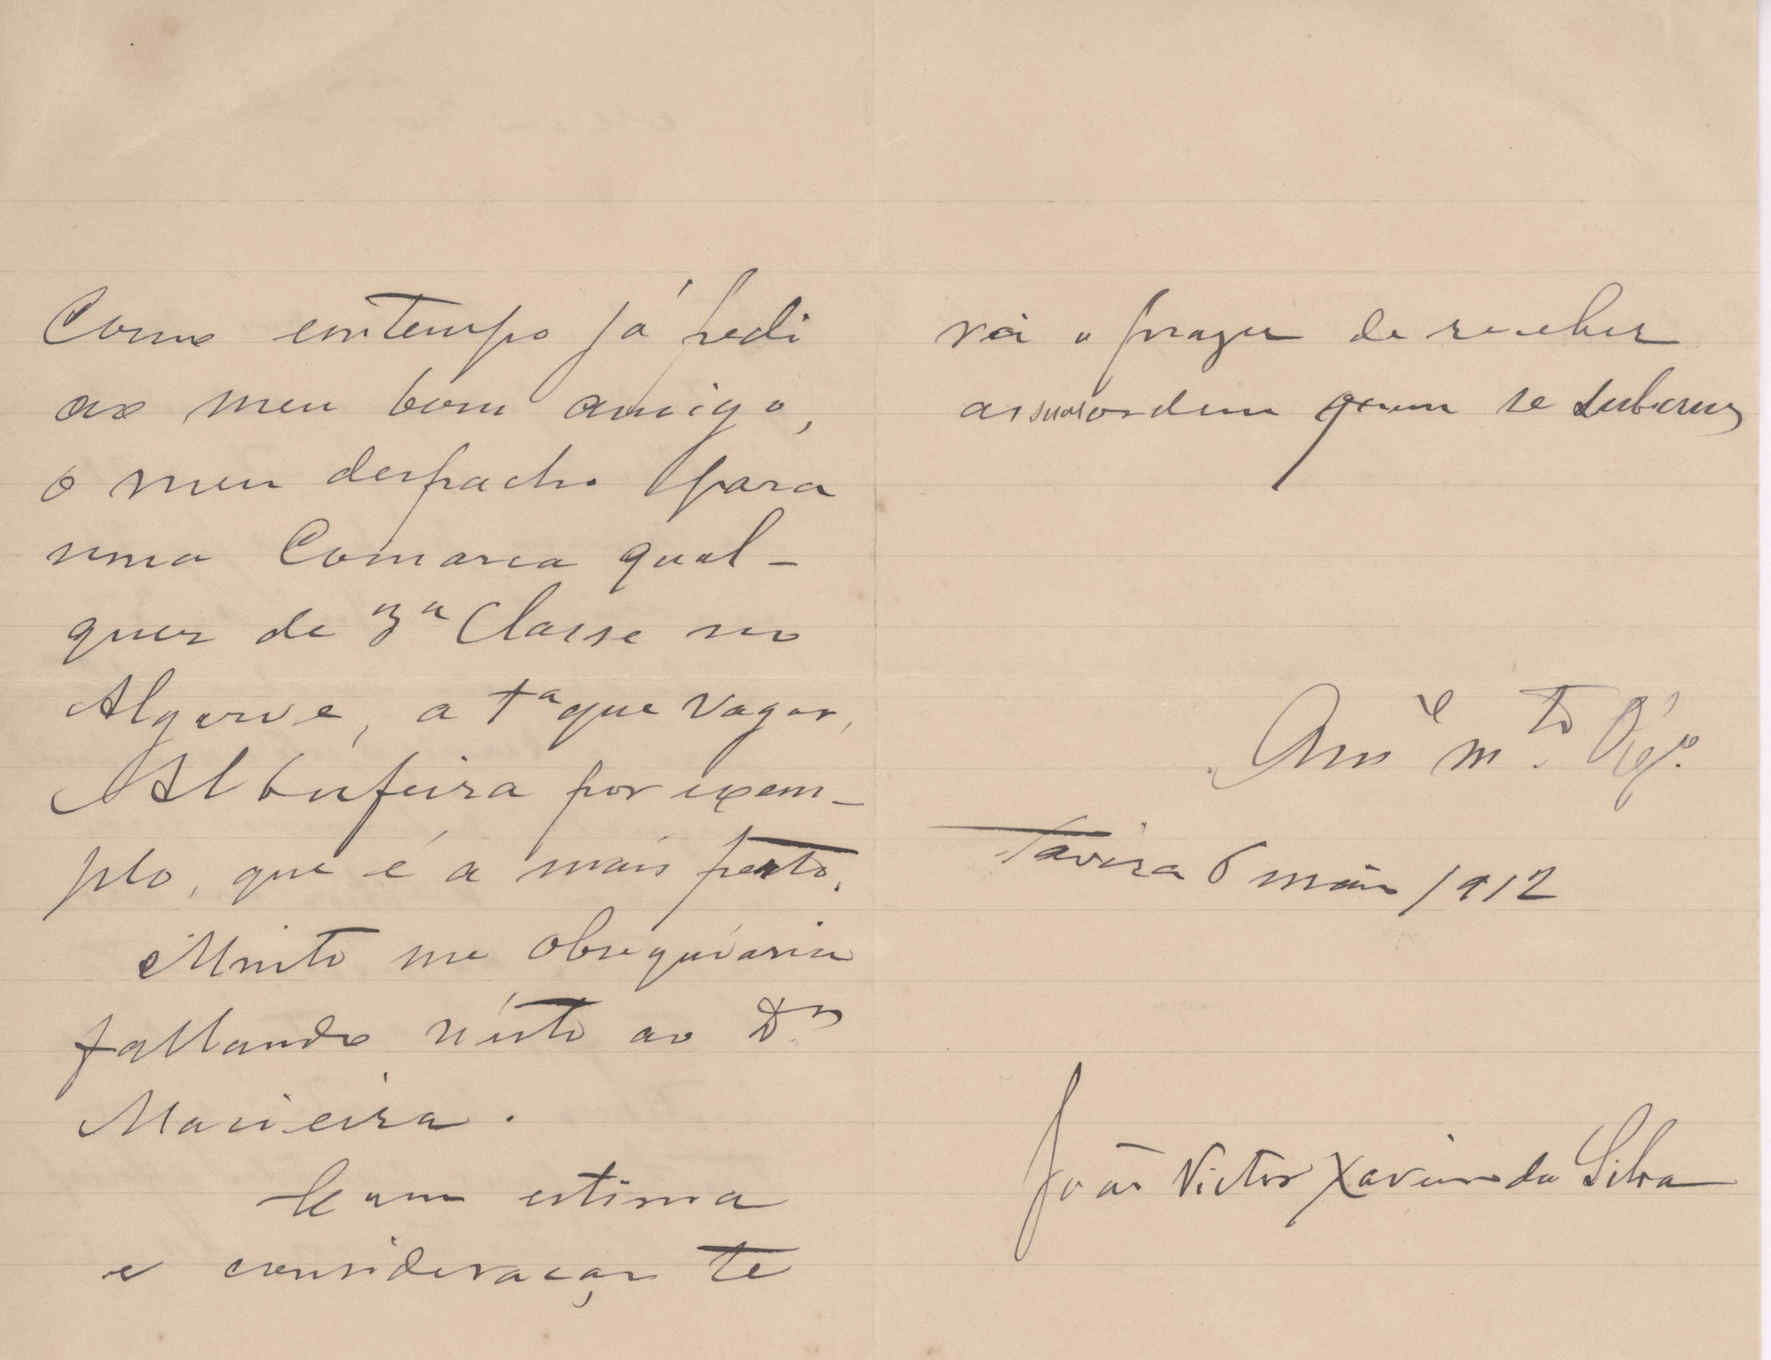 Como em tempo já pedi
ao meu bom amigo,
o meu despacho para
uma Comarca qual-
quer de 3ª Classe no
Algarve, a 1ª que vagar,
Albufeira por exem-
plo, que é a mais perto.
Muito me obsequiaria
fallando n'isto ao Dr.
Macieira.
Com estima
e consideração te
rá o prazer de receber
as suas ordem quem se subscreve
Amº e mto Obrigº
Tavira 6 maio 1912
João Victor Xavier da Silva